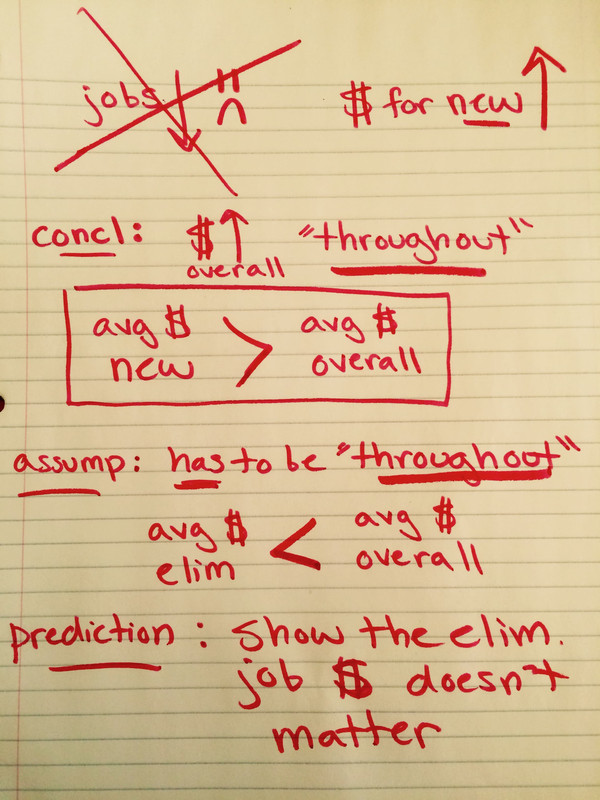 jobs ↓ $ for new ↑
concl: $↑ "throughout"
overall
avg $ > avg $
new overall
assump: has to be "throughout"
avg $ < avg $
elim overall
prediction: show the elim.
job $ doesn't
matter